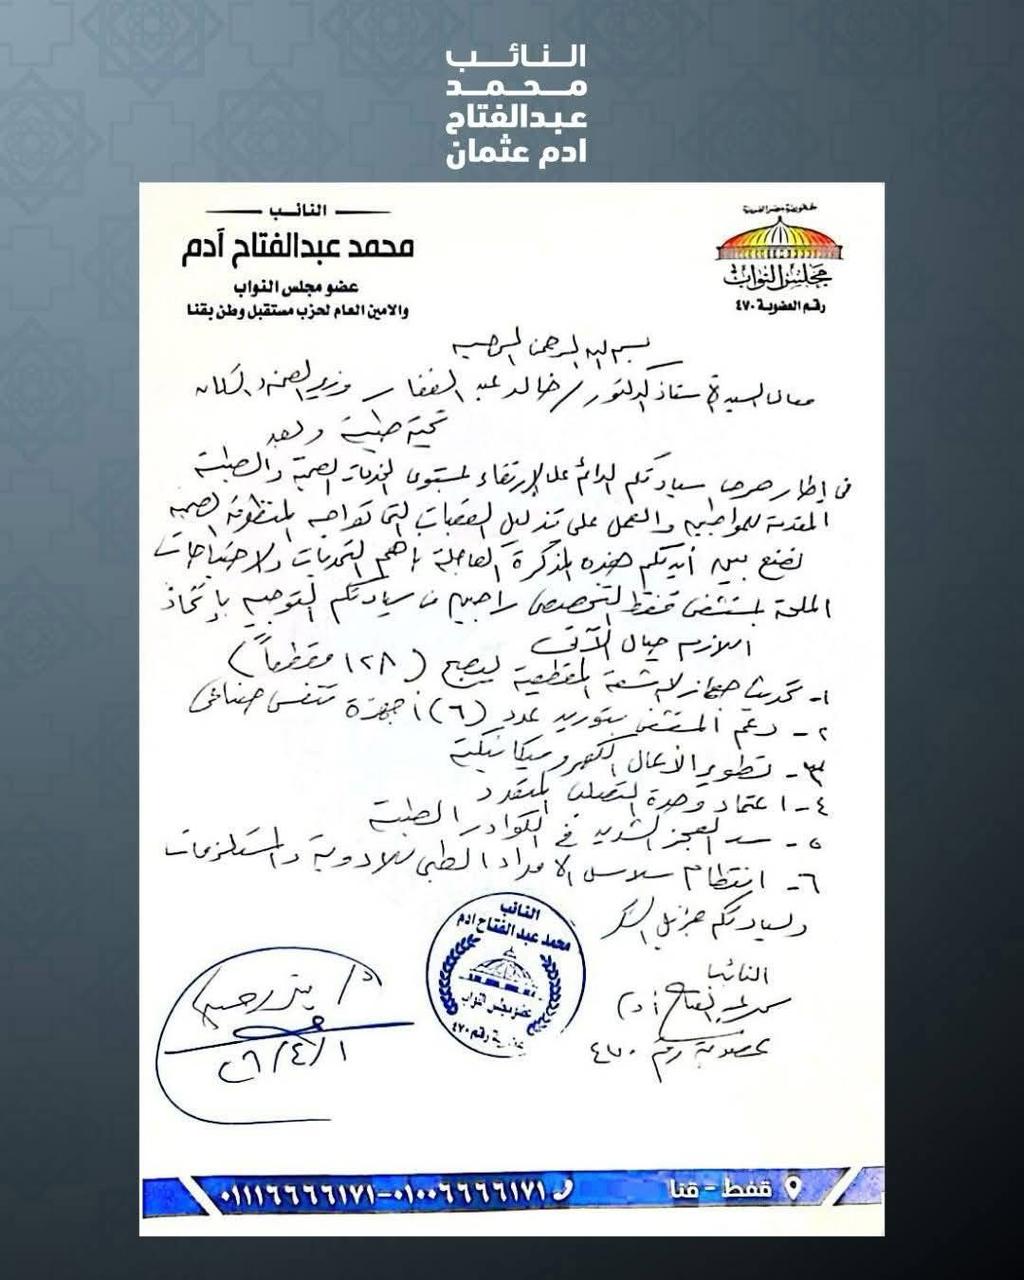 النائب
محمد
عبدالفتاح
ادم عثمان
النائب
محمد عبدالفتاح آدم
عضو مجلس النواب
والامين العام لحزب مستقبل وطن بقنا
مجلس النواب
رقم العضوية ٤٧٠
بسم الله الرحمن الرحيم
معالى السيد الأستاذ الدكتور / خالد عبد الغفار وزير الصحة والسكان
تحية طيبة وبعد
فى إطار حرص سيادتكم الدائم على الإرتقاء بمستوى الخدمات الصحية والطبية
المقدمة للمواطنين والعمل على تذليل العقبات التى تواجه المنظومة الصحية
نضع بين أيديكم هذه المذكرة العاجلة بأهم التحديات والاحتياجات
الملحة لمستشفى قفط التخصصى راجين من سيادتكم التوجيه بإتخاذ
اللازم حيال الآتى
١- تحديث جهاز الاشعة المقطعية ليصبح (١٢٨ مقطعاً)
٢- دعم المستشفى بتوريد عدد (٦) أجهزة تنفس صناعى
٣- تطوير الأعمال الكهروميكانيكية
٤- اعتماد وحدة
٥- سد العجز الشديد فى الكوادر الطبية
٦- انتظام سلاسل الامداد الطبى للادوية والمستلزمات
ولسيادتكم جزيل الشكر
النائب
محمد عبد الفتاح آدم
عضوية رقم ٤٧٠
النائب
محمد عبدالفتاح ادم
عضو مجلس النواب
عضوية رقم ٤٧٠
د/
٢٦/٤/١
قفط - قنا
٠١١١٦٦٦٦١٧١-٠١٠٠٦٦٦٦١٧١